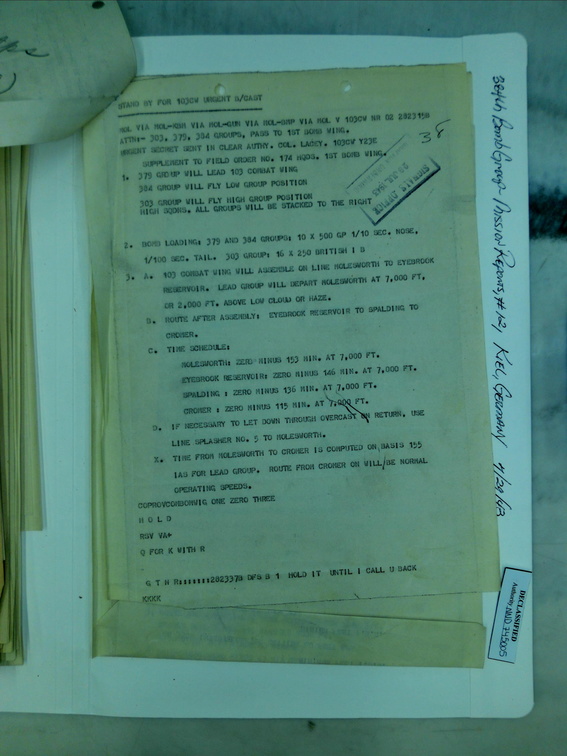 STAND BY FOR 103CW URGENT B/CAST
MOL VIA MOL-RNH VIA MOL-GUN VIA MOL-GRP VIA MOL V 103CW NR 02 282315B
ATTN:- 303, 379, 384 GROUPS, PASS TO 1ST BOMB WING.
URGENT SECRET SENT IN CLEAR AUTHY. COL. LACEY. 103CW Y23E
SUPPLEMENT TO FIELD ORDER NO. 174 HQDS. 1ST BOMB WING.
1. 379 GROUP WILL LEAD 103 COMBAT WING
384 GROUP WILL FLY LOW GROUP POSITION
303 GROUP WILL FLY HIGH GROUP POSITION
HIGH SQDNS. ALL GROUPS WILL BE STACKED TO THE RIGHT
2. BOMB LOADING: 379 AND 384 GROUPS: 10 X 500 GP 1/10 SEC. NOSE,
1/100 SEC. TAIL. 303 GROUP: 16 X 250 BRITISH I B
3. A. 103 COMBAT WING WILL ASSEMBLE ON LINE MOLESWORTH TO EYEBROOK
RESERVOIR. LEAD GROUP WILL DEPART MOLESWORTH AT 7,000 FT.
OR 2,000 FT. ABOVE LOW CLOUD OR HAZE.
B. ROUTE AFTER ASSEMBLY: EYEBROOK RESERVOIR TO SPALDING TO
CROMER.
C. TIME SCHEDULE:
MOLESWORTH: ZERO MINUS 153 MIN. AT 7,000 FT.
EYEBROOK RESERVOIR: ZERO MINUS 146 MIN. AT 7,000 FT.
SPALDING : ZERO MINUS 136 MIN. AT 7,000 FT.
CROMER : ZERO MINUS 115 MIN. AT 7,000 FT.
D. IF NECESSARY TO LET DOWN THROUGH OVERCAST ON RETURN, USE
LINE SPLASHER NO. 5 TO MOLESWORTH.
E. TIME FROM MOLESWORTH TO CROMER IS COMPUTED ON BASIS 155
IAS FOR LEAD GROUP. ROUTE FROM CROMER ON WILL BE NORMAL
OPERATING SPEEDS.
COPROVCOMBOMWIG ONE ZERO THREE
H O L D
RSV VA*
Q FOR K WITH R
G T H R:::::::282337B DFS B 1 HOLD IT UNTIL I CALL U BACK
XXXX
38
384th Bomb Group Mission Reports, #12, KIEL, GERMANY 7/29/43
DECLASSIFIED
Authority NND 745005